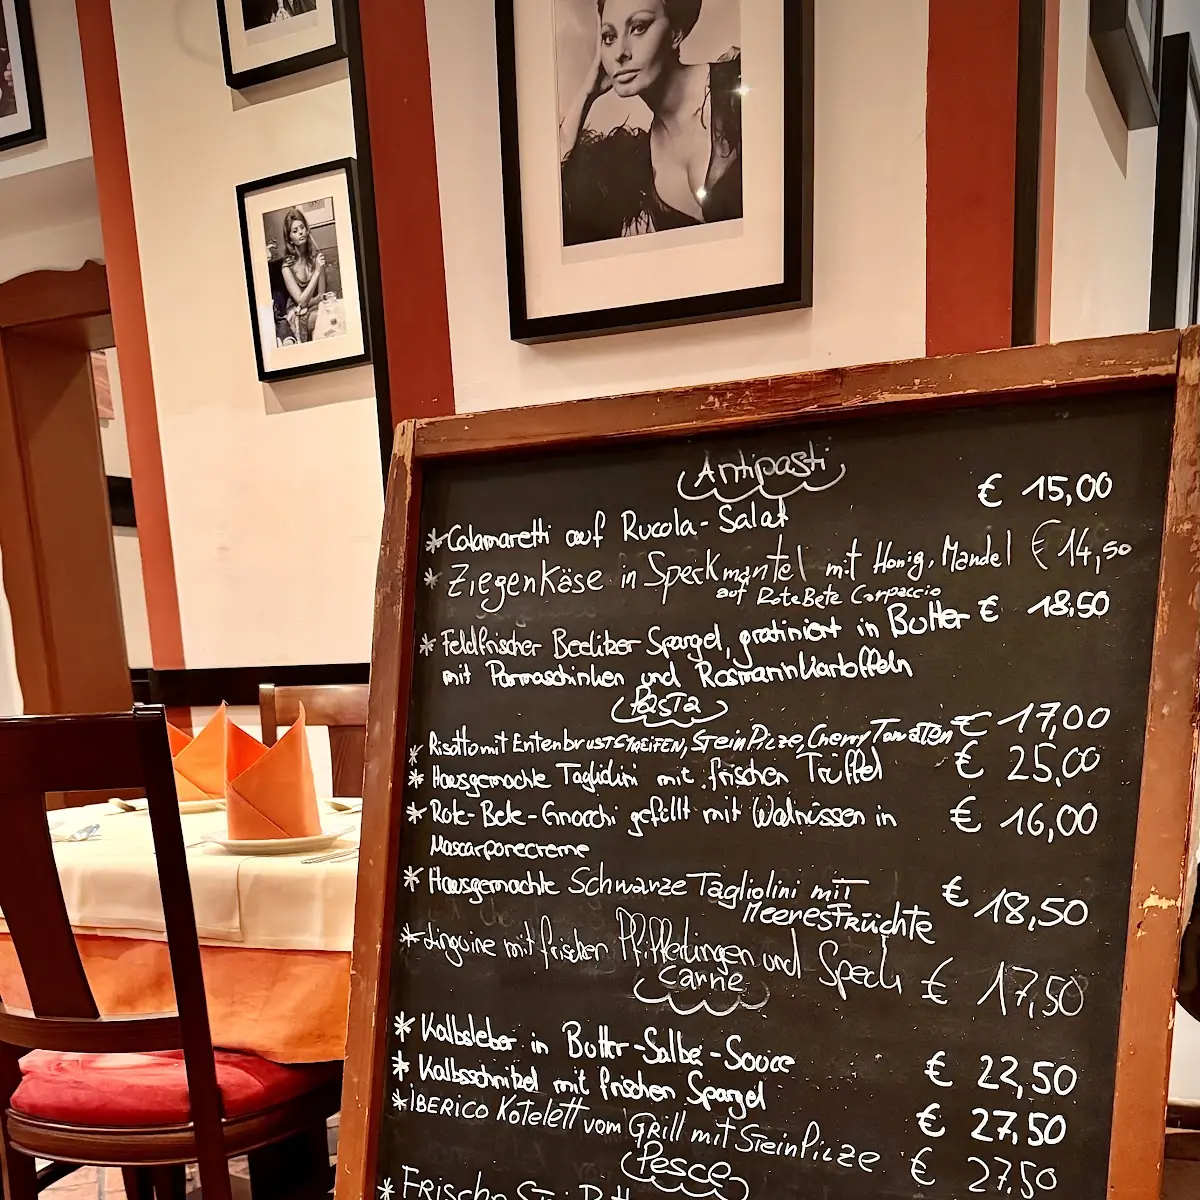 Antipasti
* Calamaretti auf Rucola-Salat € 15,00
* Ziegenkäse in Speckmantel mit Honig, Mandel € 14,50
auf Rote Bete Carpaccio
* Feldfrischer Beelitzer Spargel, gratiniert in Butter € 18,50
mit Parmaschinken und Rosmarinkartoffeln
Pasta
* Risotto mit Entenbruststreifen, Steinpilze, Cherry Tomaten € 17,00
* Hausgemachte Tagliolini mit frischen Trüffel € 25,00
* Rote-Bete-Gnocchi gefüllt mit Walnüssen in € 16,00
Mascarponecreme
* Hausgemachte Schwarze Tagliolini mit € 18,50
Meeresfrüchte
* Linguine mit frischen Pfifferlingen und Speck € 17,50
Carne
* Kalbsleber in Butter-Salbe-Souce € 22,50
* Kalbsschnitzel mit frischen Spargel € 27,50
* Iberico Kotelett vom Grill mit Steinpilze € 27,50
Pesce
*